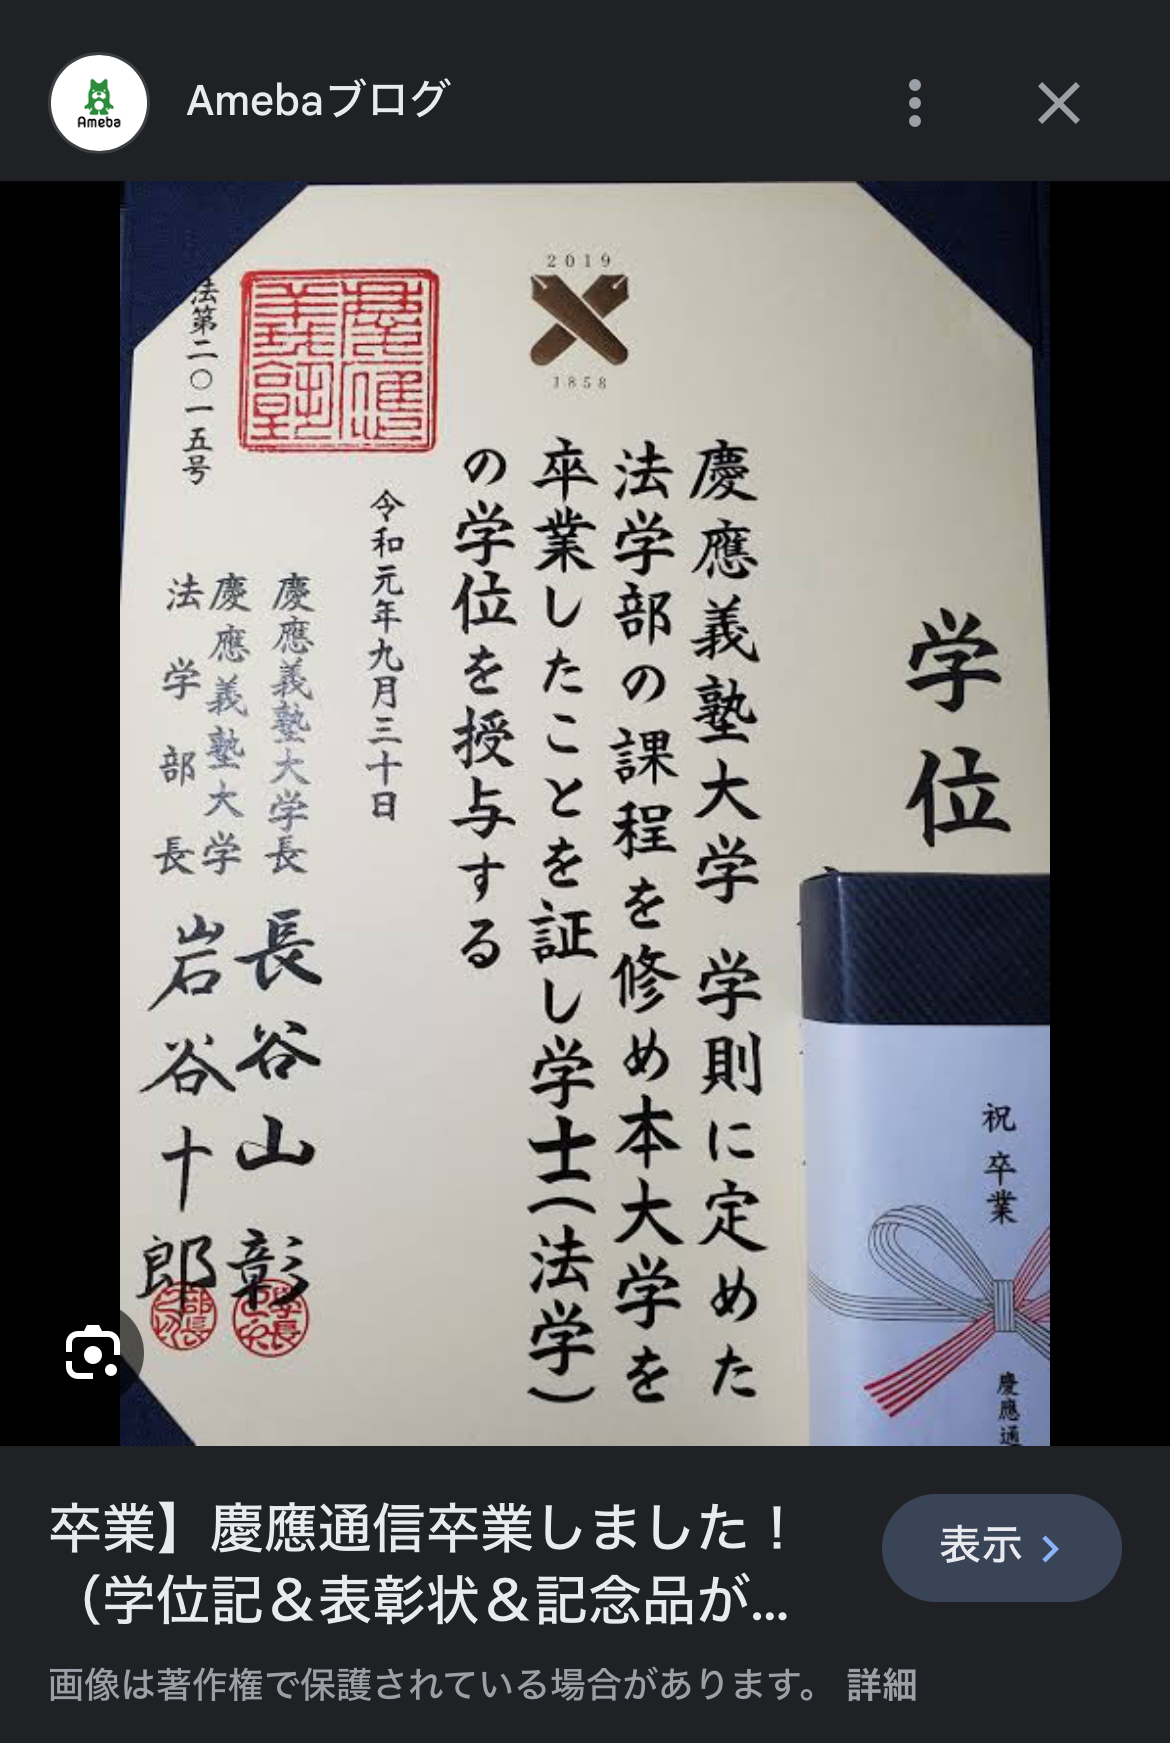 Ameba
Amebaブログ
2019
1858
学位
慶應義塾大学 学則に定めた
法学部の課程を修め本大学を
卒業したことを証し学士(法学)
の学位を授与する
令和元年九月三十日
慶應義塾大学長 長谷山彰
慶應義塾大学
法学部長 岩谷十郎
法第二〇一五号
慶應義塾
祝 卒業
慶應通
卒業】慶應通信卒業しました!
(学位記&表彰状&記念品が...
表示
画像は著作権で保護されている場合があります。 詳細